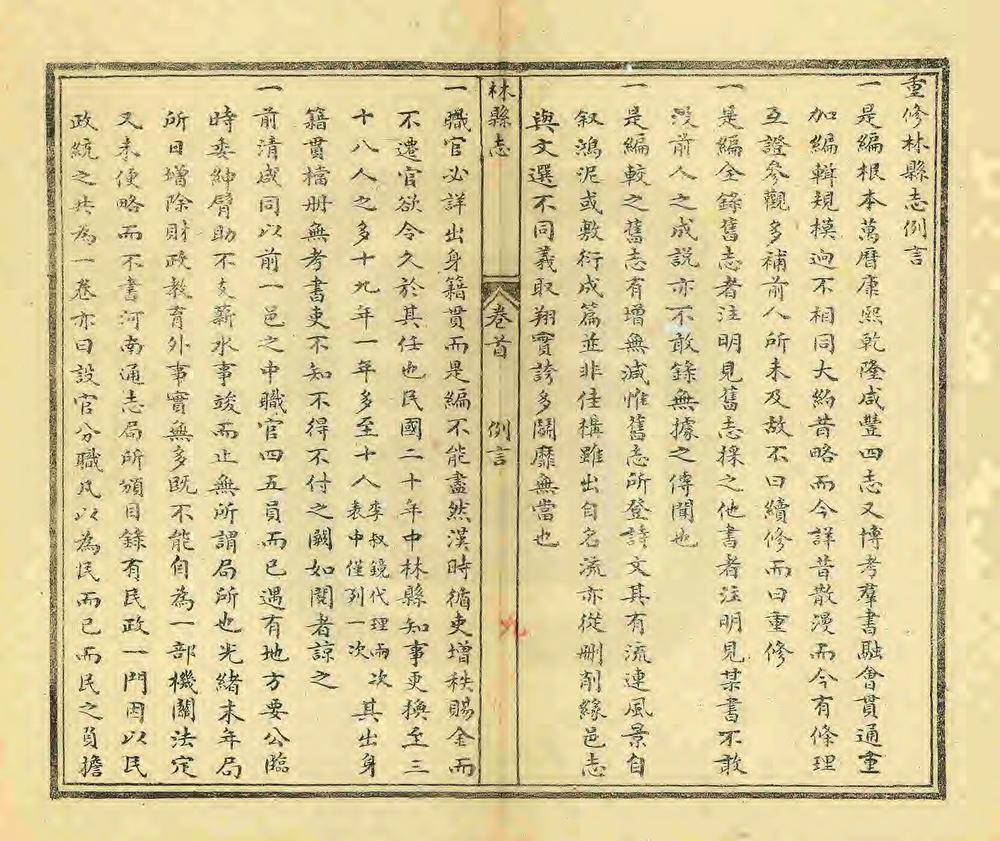 重修林縣志例言
一是編根本萬曆康熙乾隆咸豐四志又博考羣書融會貫通重
加編輯規模迥不相同大約昔略而今詳昔散漫而今有條理
互證參觀多補前人所未及故不曰續修而曰重修
一是編全錄舊志者注明見舊志採之他書者注明見某書不敢
沒前人之成説亦不敢錄無據之傳聞也
一是編較之舊志有增無減惟舊志所登詩文其有流連風景自
叙鴻泥或敷衍成篇並非佳構雖出自名流亦從刪削緣邑志
與文選不同義取翔實誇多鬭靡無當也
林縣志
卷首
例言
九
一職官必詳出身籍貫而是編不能盡然漢時循吏增秩賜金而
不遷官欲令久於其任也民國二十年中林縣知事更換至三
十八人之多十九年一年多至十八李叔鏡代理兩次表中僅列一次其出身
籍貫檔册無考書吏不知不得不付之闕如閱者諒之
一前清咸同以前一邑之中職官四五員而已遇有地方要公臨
時委紳臂助不支薪水事竣而止無所謂局所也光緒末年局
所日增除財政教育外事實無多既不能自為一部機關法定
又未便略而不書河南通志局所頒目錄有民政一門因以民
政統之共為一卷亦曰設官分職凡以為民而已而民之負擔